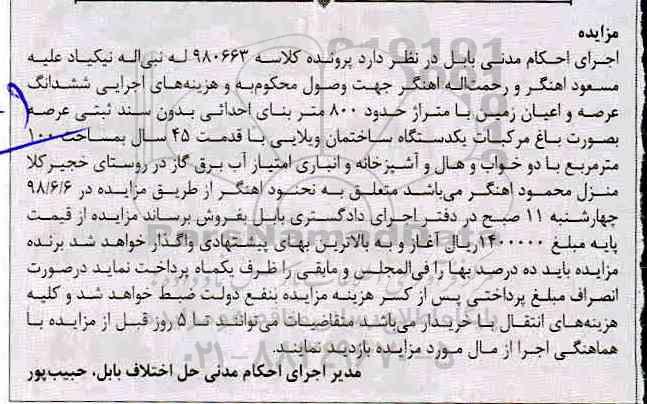 مزایده
اجرای احکام مدنی بابل در نظر دارد پرونده کلاسه ۹۸۰۶۶۳ له نبی‌اله نیکیاد علیه
مسعود اهنگر و رحمت‌اله اهنگر جهت وصول محکوم‌به و هزینه‌های اجرایی ششدانگ
عرصه و اعیان زمین با متراژ حدود ۸۰۰ متر بنای احداثی بدون سند ثبتی عرصه
بصورت باغ مرکبات یکدستگاه ساختمان ویلایی با قدمت ۴۵ سال بمساحت ۱۰۰
مترمربع با دو خواب و هال و آشپزخانه و انباری امتیاز آب برق گاز در روستای خجیرکلا
منزل محمود اهنگر می‌باشد متعلق به نحنود اهنگر از طریق مزایده در ۹۸/۶/۶
چهارشنبه ۱۱ صبح در دفتر اجرای دادگستری بابل بفروش برساند مزایده از قیمت
پایه مبلغ ۱۴۰۰۰۰۰ریال آغاز و به بالاترین بهای پیشنهادی واگذار خواهد شد برنده
مزایده باید ده درصد بها را فی‌المجلس و مابقی را ظرف یکماه پرداخت نماید درصورت
انصراف مبلغ پرداختی پس از کسر هزینه مزایده بنفع دولت ضبط خواهد شد و کلیه
هزینه‌های انتقال با خریدار می‌باشد متقاضیات می‌توانند تا ۵ روز قبل از مزایده با
هماهنگی اجرا از مال مورد مزایده بازدید نمایند.
مدیر اجرای احکام مدنی حل اختلاف بابل، حبیب‌پور